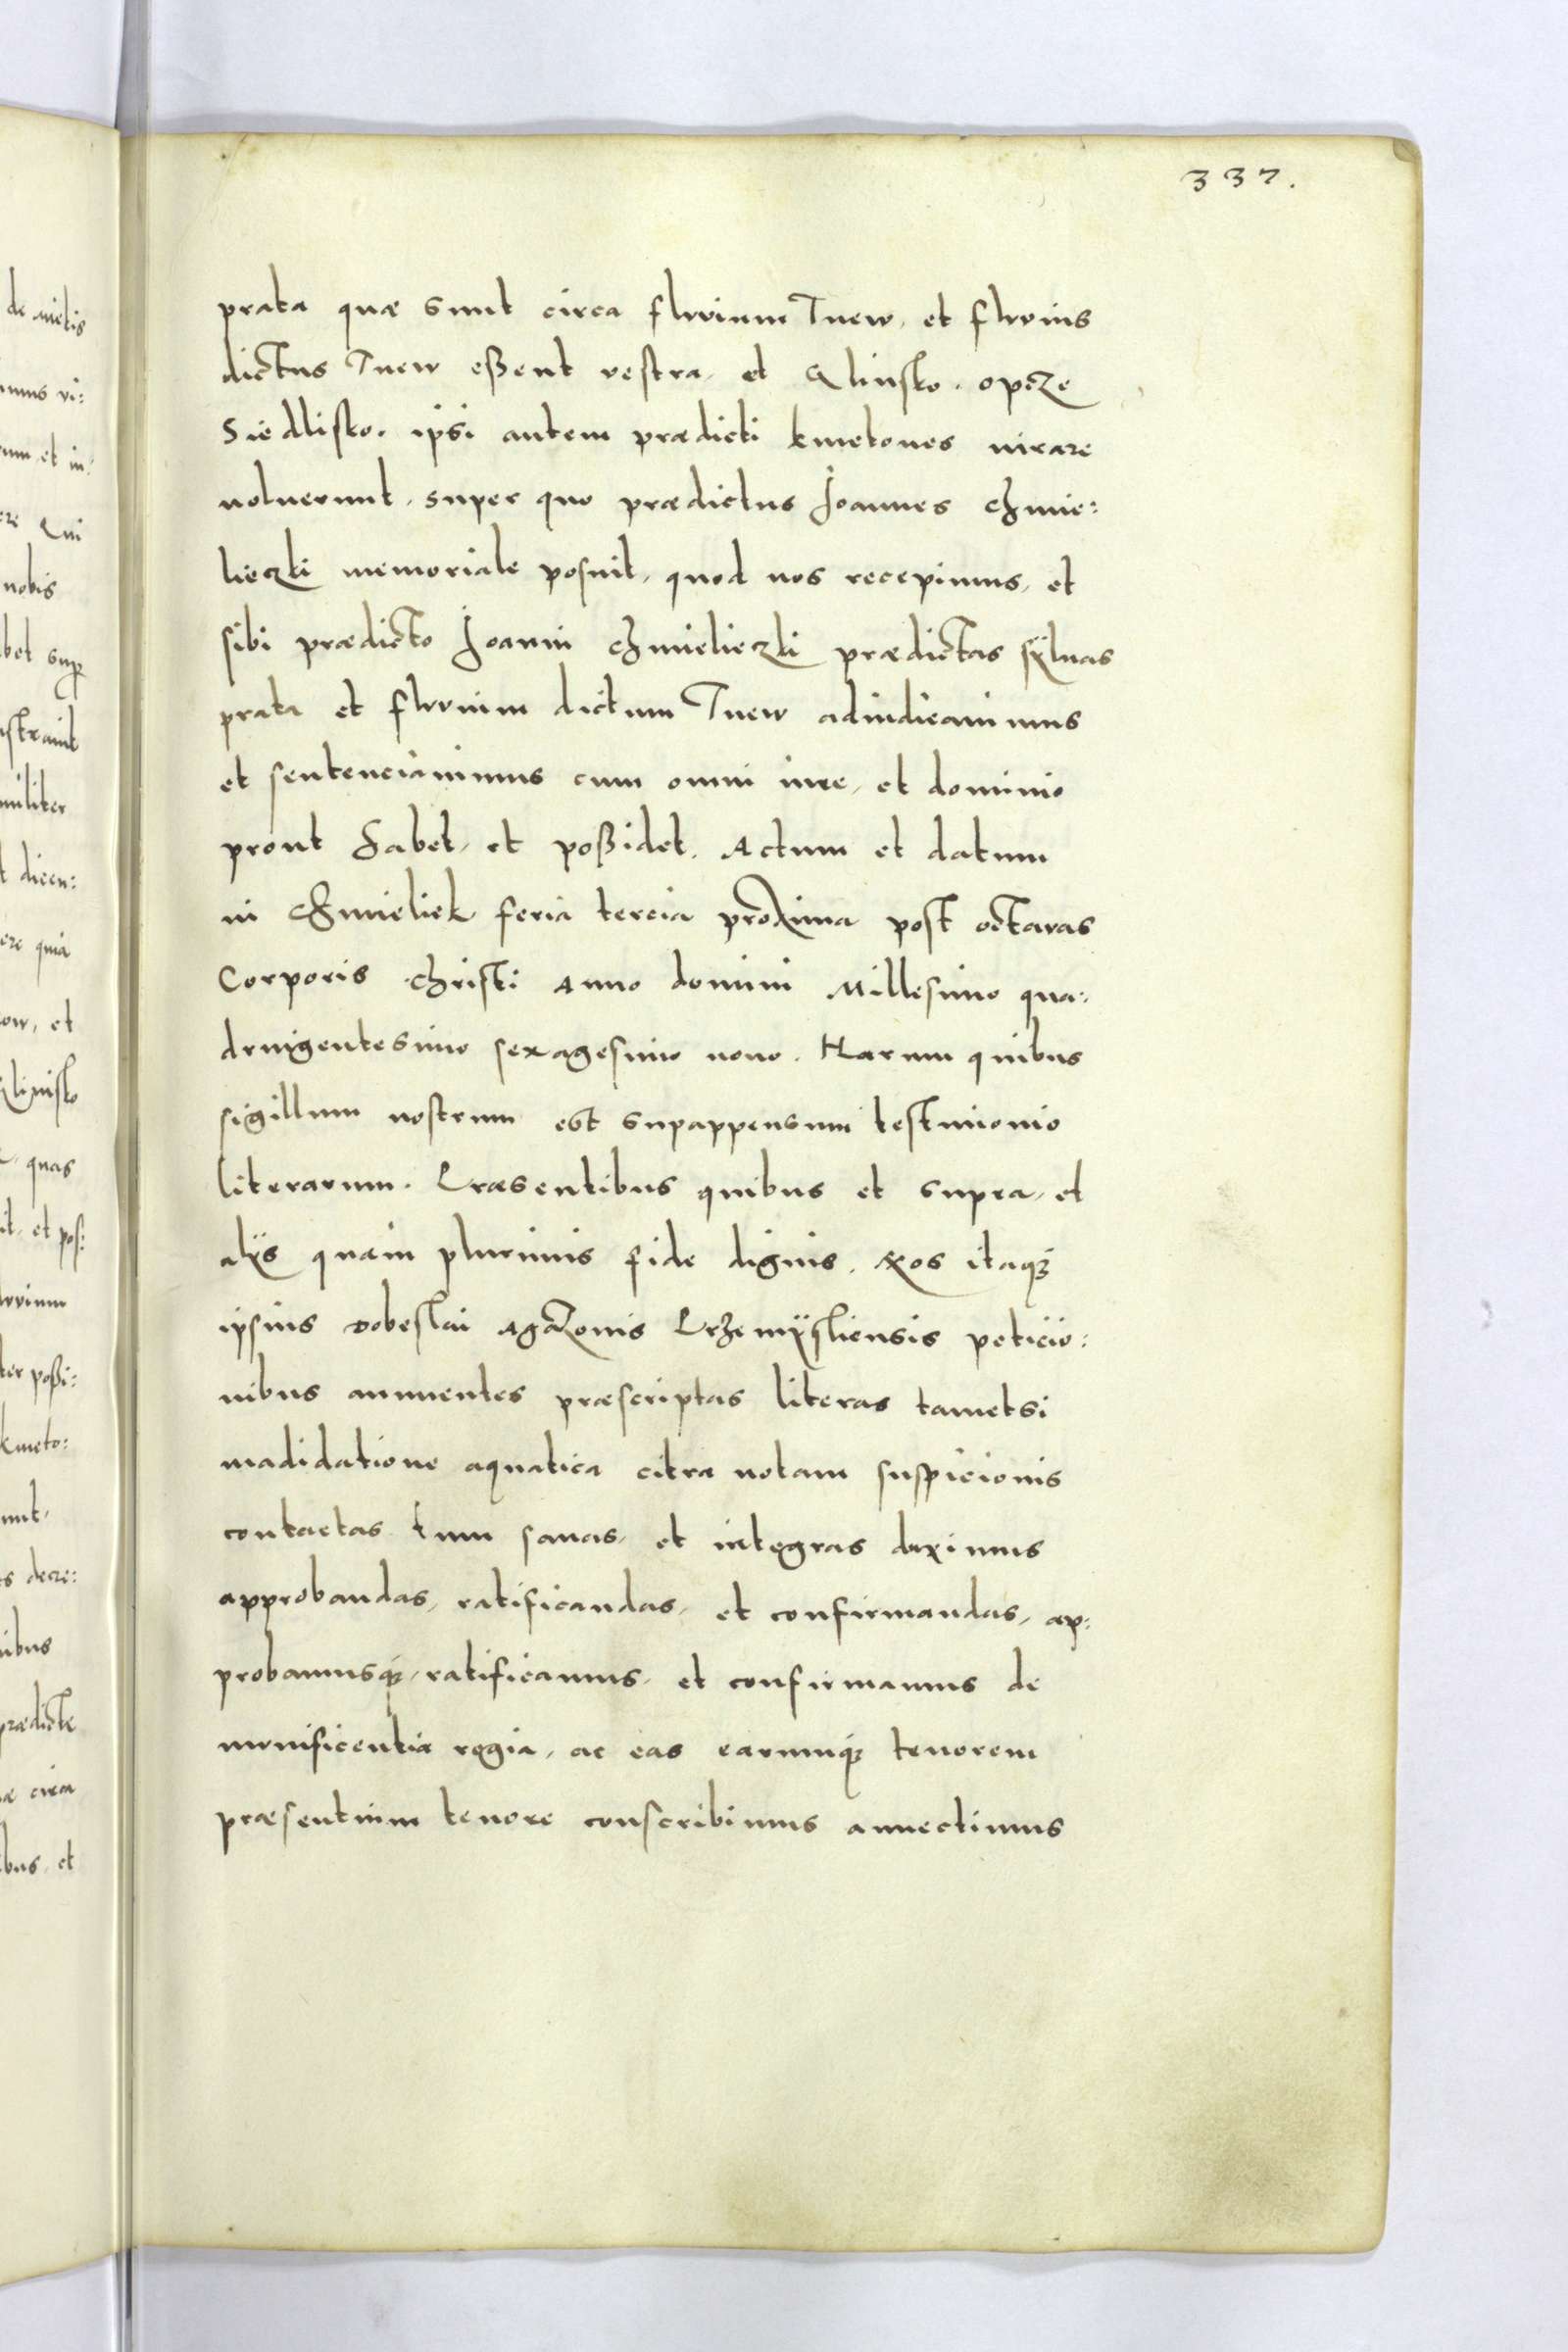 337.
prata quæ sunt circa fluvium Tnew, et fluvius
dictus Tnew eßent vestra, et Glinsko. opcze
Siedlisko. ipsi autem prædicti kmetones iurare
noluerunt. super quo prædictus Joannes Chmie:
lieczki memoriale posuit, quod nos recepimus, et
sibi prædicto Joanni Chmielieczki prædictas sÿluas
prata et fluvium dictum Tnew adiudicauimus
et sentenciauimus cum omni iure, et dominio
prout habet, et poßidet. Actum et datum
in Chmieliek feria tercia proxima post octavas
Corporis Christi Anno domini Millesimo qua:
dringentesimo sexagesimo nono. Harum quibus
sigillum nostrum est supappensum testimonio
literarum. Præsentibus quibus et supra, et
alÿs quam plurimis fide dignis. Nos itaque
ipsius Dobeslai Agazonis Przemÿsliensis peticio:
nibus annuentes præscriptas literas tametsi
madidatione aquatica citra notam suspicionis
contactas tum sanas, et integras duximus
approbandas, ratificandas, et confirmandas, ap:
probamusque, ratificamus, et confirmamus de
munificentia regia, ac eas earumque tenorem
præsentium tenore conscribimus annectimus
de metis
vi:
et in:
Qui
nobis
sup
militer
dicen:
quia
et
Glinsko
quas
et pos:
poßi:
kmeto:
decre:
prædicte
circa
et